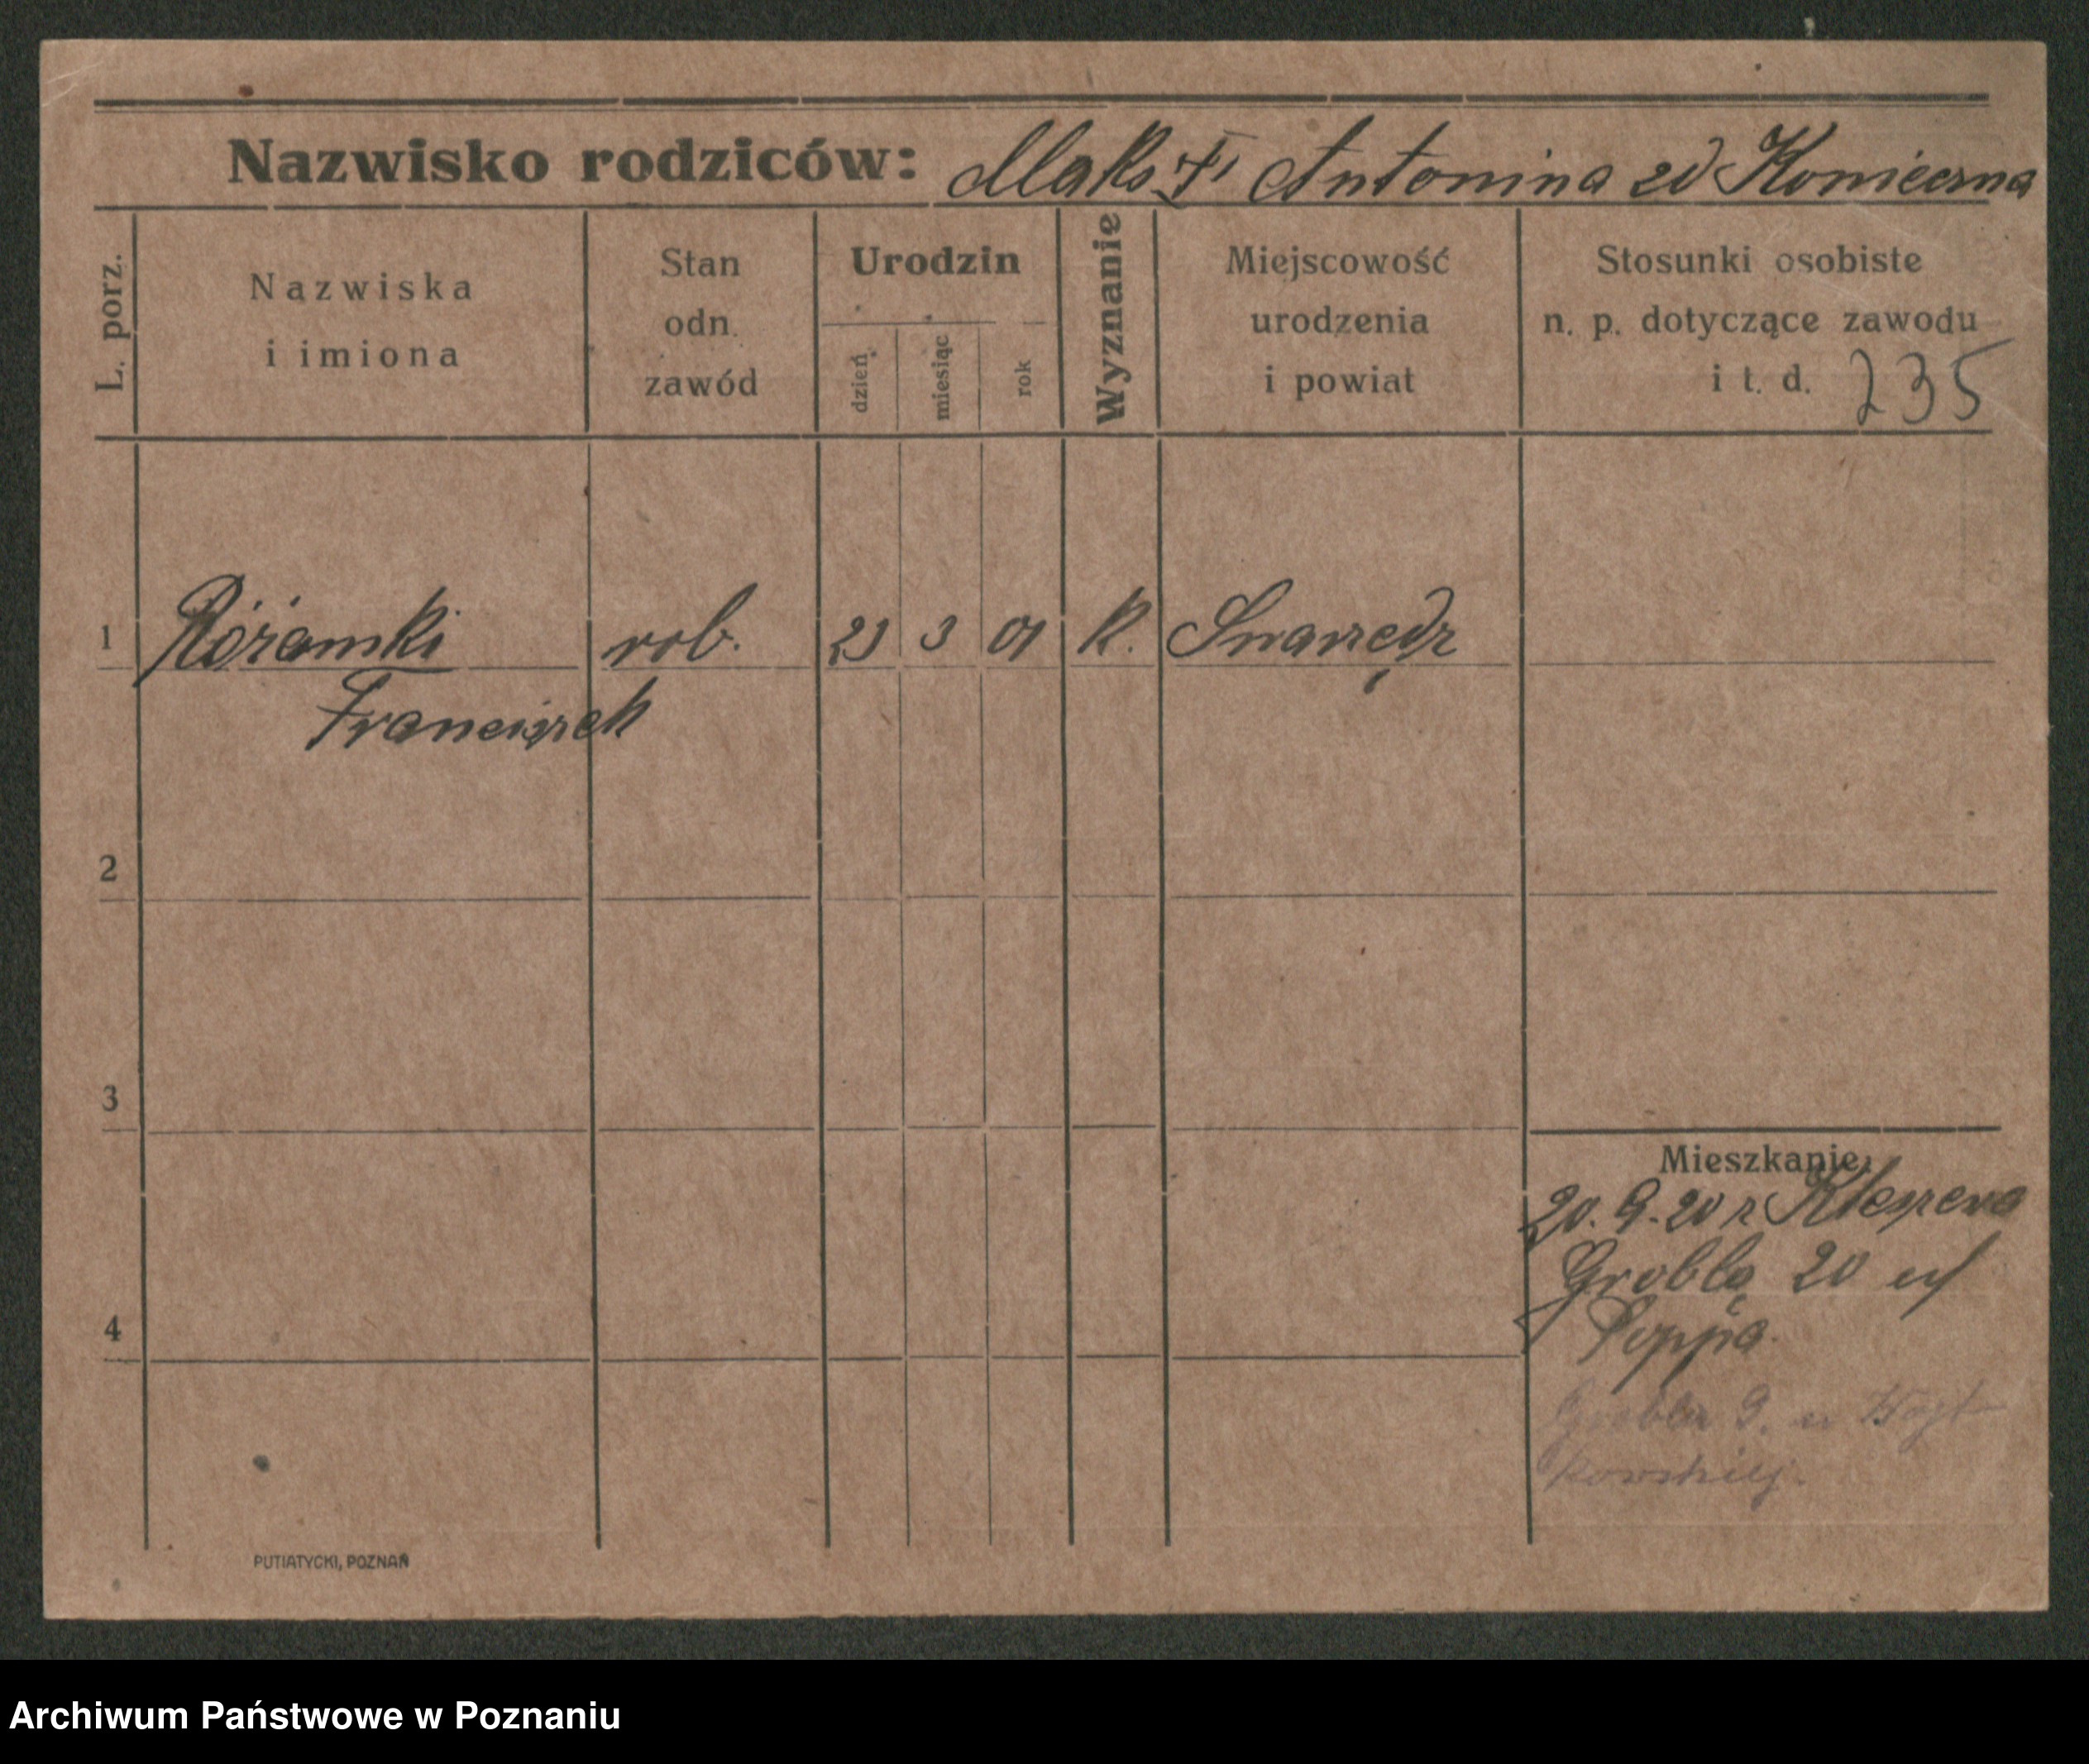 Nazwisko rodziców: Maks † i Antonina zd Konieczna
L. porz.
Nazwiska
i imiona
Stan
odn.
zawód
Urodzin
dzień
miesiąc
rok
Wyznanie
Miejscowość
urodzenia
i powiat
Stosunki osobiste
n. p. dotyczące zawodu
i t. d. 235
1 Różański rob. 23 3 01 k. Swarzędz
Franciszek
2
3
4
Mieszkanie:
20. 9. 20 z Kleszczewa
Grobla 20 u/
Poppa.
Grobla 9. u Wojt
kowskiej.
PUTIATYCKI, POZNAŃ
Archiwum Państwowe w Poznaniu